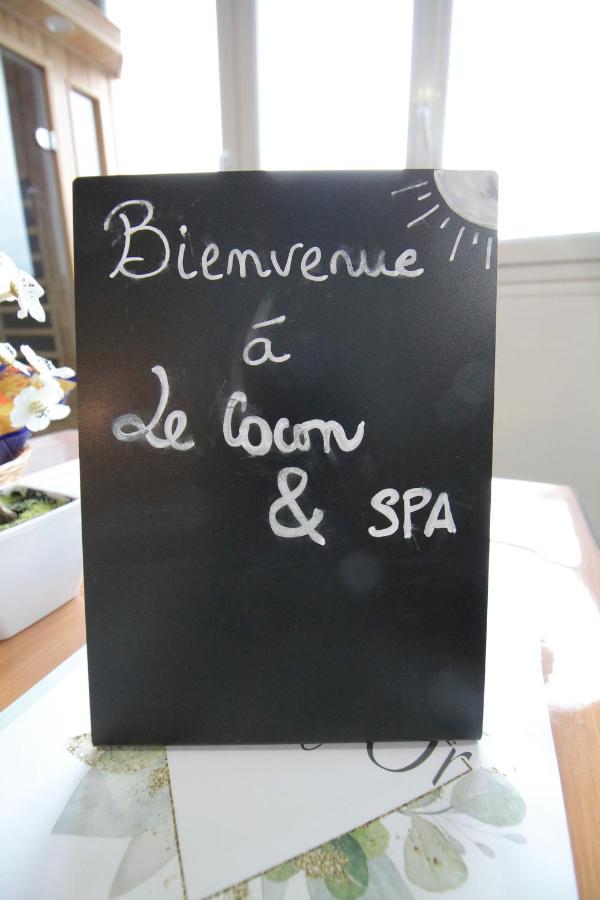 Bienvenue
á
Le Cocon
& SPA
Or